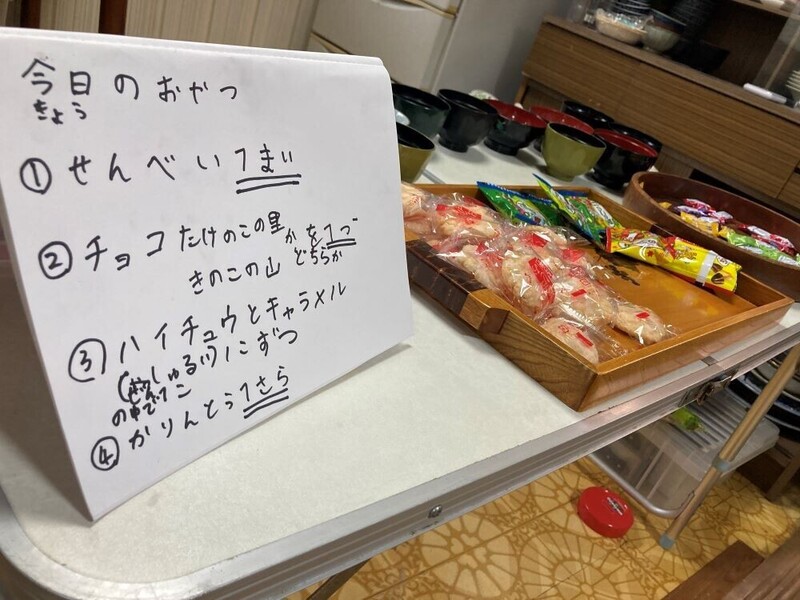 今日のおやつ
きょう
①せんべい1まい
②チョコ たけのこの里 か を1つ
きのこの山 どちらか
③ハイチュウとキャラメル
しゅるい)1こずつ
の中で1こ
④かりんとう1さら